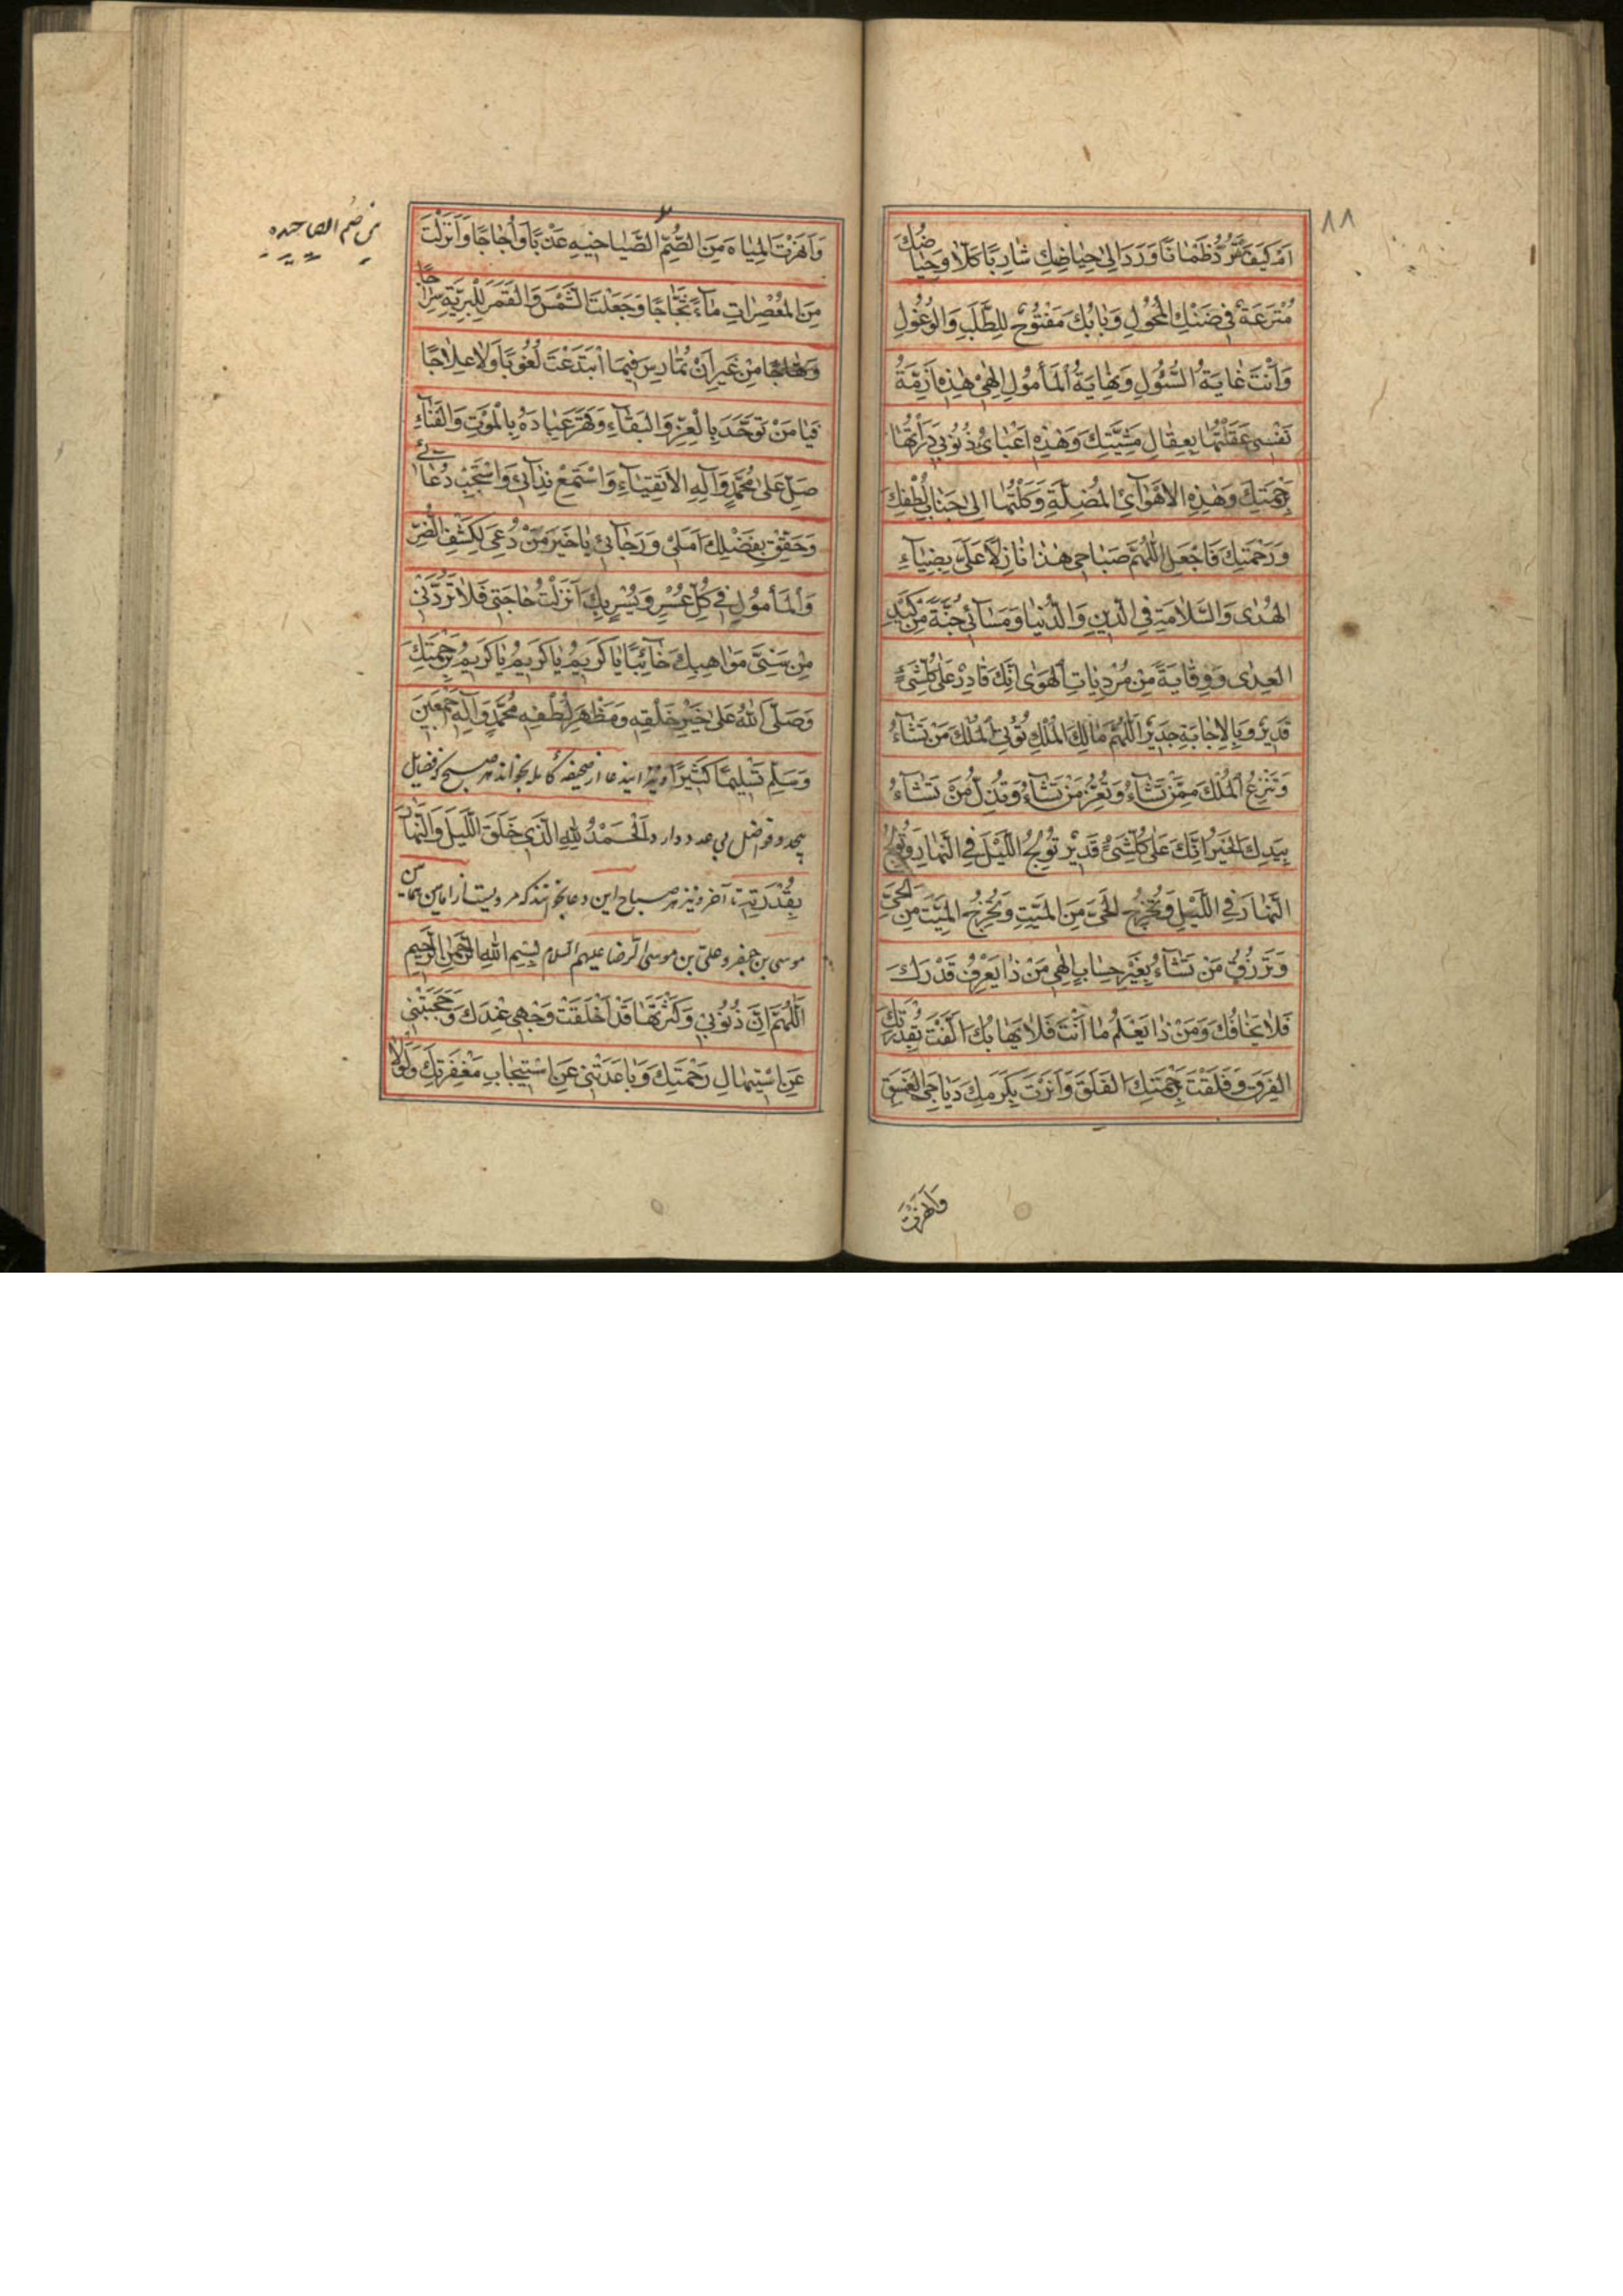 ٨٨
اَمْ كَيْفَ تَرُدُّ ظَمْاٰنًا وَرَدَ اِلىٰ حِيٰاضِكَ شٰارِبًا كَلّٰا وَحِيٰاضُكَ
مُتْرَعَةٌ فِي ضَنْكِ الْمُحُولِ وَبٰابُكَ مَفْتُوحٌ لِلطَّلَبِ وَالْوُغُولِ
وَاَنْتَ غٰايَةُ السُّئُولِ وَنِهٰايَةُ الْمَأمُولِ اِلٰهِي هٰذِهِ اَزِمَّةُ
نَفْسِي عَقَلْتُهٰا بِعِقٰالِ مَشِيَّتِكَ وَهٰذِهِ اَعْبٰاءُ ذُنُوبِي دَرَأتُهٰا
بِرَحْمَتِكَ وَهٰذِهِ الْاَهْوٰائِيَ الْمُضِلَّةِ وَكَلْتُهٰا اِلىٰ جَنٰابِ لُطْفِكَ
وَرَحْمَتِكَ فَاجْعَلِ اللّٰهُمَّ صَبٰاحِي هٰذٰا نٰازِلًا عَلَيَّ بِضِيٰاءِ
الْهُدىٰ وَالسَّلٰامَةِ فِي الدِّينِ وَالدُّنْيٰا وَمَسٰائِي جُنَّةً مِنْ كَيْدِ
الْعِدىٰ وَوِقٰايَةً مِنْ مُرْدِيٰاتِ الْهَوىٰ اِنَّكَ قٰادِرٌ عَلىٰ كُلِّ شَيْءٍ
قَدِيرٌ وَبِالْاِجٰابَةِ جَدِيرٌ اَللّٰهُمَّ مٰالِكَ الْمُلْكِ تُؤْتِي الْمُلْكَ مَنْ تَشٰاءُ
وَتَنْزِعُ الْمُلْكَ مِمَّنْ تَشٰاءُ وَتُعِزُّ مَنْ تَشٰاءُ وَتُذِلُّ مَنْ تَشٰاءُ
بِيَدِكَ الْخَيْرُ اِنَّكَ عَلىٰ كُلِّ شَيْءٍ قَدِيرٌ تُولِجُ اللَّيْلَ فِي النَّهٰارِ وَتُولِجُ
النَّهٰارَ فِي اللَّيْلِ وَتُخْرِجُ الْحَيَّ مِنَ الْمَيِّتِ وَتُخْرِجُ الْمَيِّتَ مِنَ الْحَيِّ
وَتَرْزُقُ مَنْ تَشٰاءُ بِغَيْرِ حِسٰابٍ اِلٰهِي مَنْ ذٰا يَعْرِفُ قَدْرَكَ
فَلٰا يَخٰافُكَ وَمَنْ ذٰا يَعْلَمُ مٰا اَنْتَ فَلٰا يَهٰابُكَ اَلَّفْتَ بِقُدْرَتِكَ
الْفِرَقَ وَفَلَقْتَ بِرَحْمَتِكَ الْفَلَقَ وَاَنَرْتَ بِكَرَمِكَ دَيٰاجِيَ الْغَسَقِ
وَاَنْهَرْتَ
وَاَنْهَرْتَ الْمِيٰاهَ مِنَ الصُّمِّ الصَّيٰاخِيدِ عَذْبًا وَاُجٰاجًا وَاَنْزَلْتَ
مِنَ الْمُعْصِرٰاتِ مٰاءً ثَجّٰاجًا وَجَعَلْتَ الشَّمْسَ وَالْقَمَرَ لِلْبَرِيَّةِ سِرٰاجًا
وَهّٰاجًا مِنْ غَيْرِ اَنْ تُمٰارِسَ فِيمَا ابْتَدَعْتَ لُغُوبًا وَلٰا عِلٰاجًا
فَيٰا مَنْ تَوَحَّدَ بِالْعِزِّ وَالْبَقٰاءِ وَقَهَرَ عِبٰادَهُ بِالْمَوْتِ وَالْفَنٰاءِ
صَلِّ عَلىٰ مُحَمَّدٍ وَآلِهِ الْاَتْقِيٰاءِ وَاسْتَمِعْ نِدٰائِي وَاسْتَجِبْ دُعٰائِي
وَحَقِّقْ بِفَضْلِكَ اَمَلِي وَرَجٰائِي يٰا خَيْرَ مَنْ دُعِيَ لِكَشْفِ الضُّرِّ
وَالْمَأمُولِ فِي كُلِّ عُسْرٍ وَيُسْرٍ بِكَ اَنْزَلْتُ حٰاجَتِي فَلٰا تَرُدَّنِي
مِنْ سَنِيِّ مَوٰاهِبِكَ خٰائِبًا يٰا كَرِيمُ يٰا كَرِيمُ يٰا كَرِيمُ بِرَحْمَتِكَ
وَصَلَّى اللهُ عَلىٰ خَيْرِ خَلْقِهِ وَمَظْهَرِ لُطْفِهِ مُحَمَّدٍ وَآلِهِ اَجْمَعِينَ
وَسَلَّمَ تَسْلِيمًا كَثِيرًا ونیز ایندعا از صحیفه کامله بخواند هر صبح که فضایل
بیحد وفواضل بی عدد دارد اَلْحَمْدُ لِلّٰهِ الَّذِي خَلَقَ اللَّيْلَ وَالنَّهٰارَ
بِقُدْرَتِهِ تا آخر ونیز هر صباح این دعا بخوانند که مرویست از امامین همامین
موسی بن جعفر وعلی بن موسی الرضا علیهم السلام بِسْمِ اللهِ الرَّحْمٰنِ الرَّحِيمِ
اَللّٰهُمَّ اِنَّ ذُنُوبِي وَكَثْرَتَهٰا قَدْ اَخْلَقَتْ وَجْهِي عِنْدَكَ وَحَجَبَتْنِي
عَنِ اسْتِيهٰالِ رَحْمَتِكَ وَبٰاعَدَتْنِي عَنِ اسْتِيجٰابِ مَغْفِرَتِكَ وَلَوْلٰا